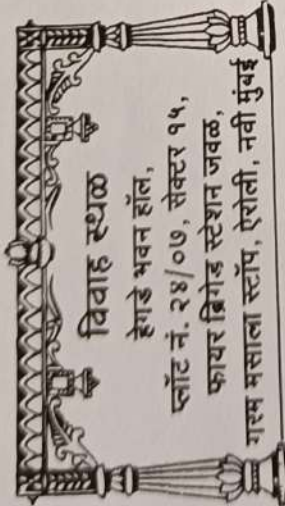 विवाह स्थळ
हेगडे भवन हॉल,
प्लॉट नं. २४/०७, सेक्टर १५,
फायर ब्रिगेड स्टेशन जवळ,
गरम मसाला स्टॉप, ऐरोली, नवी मुंबई